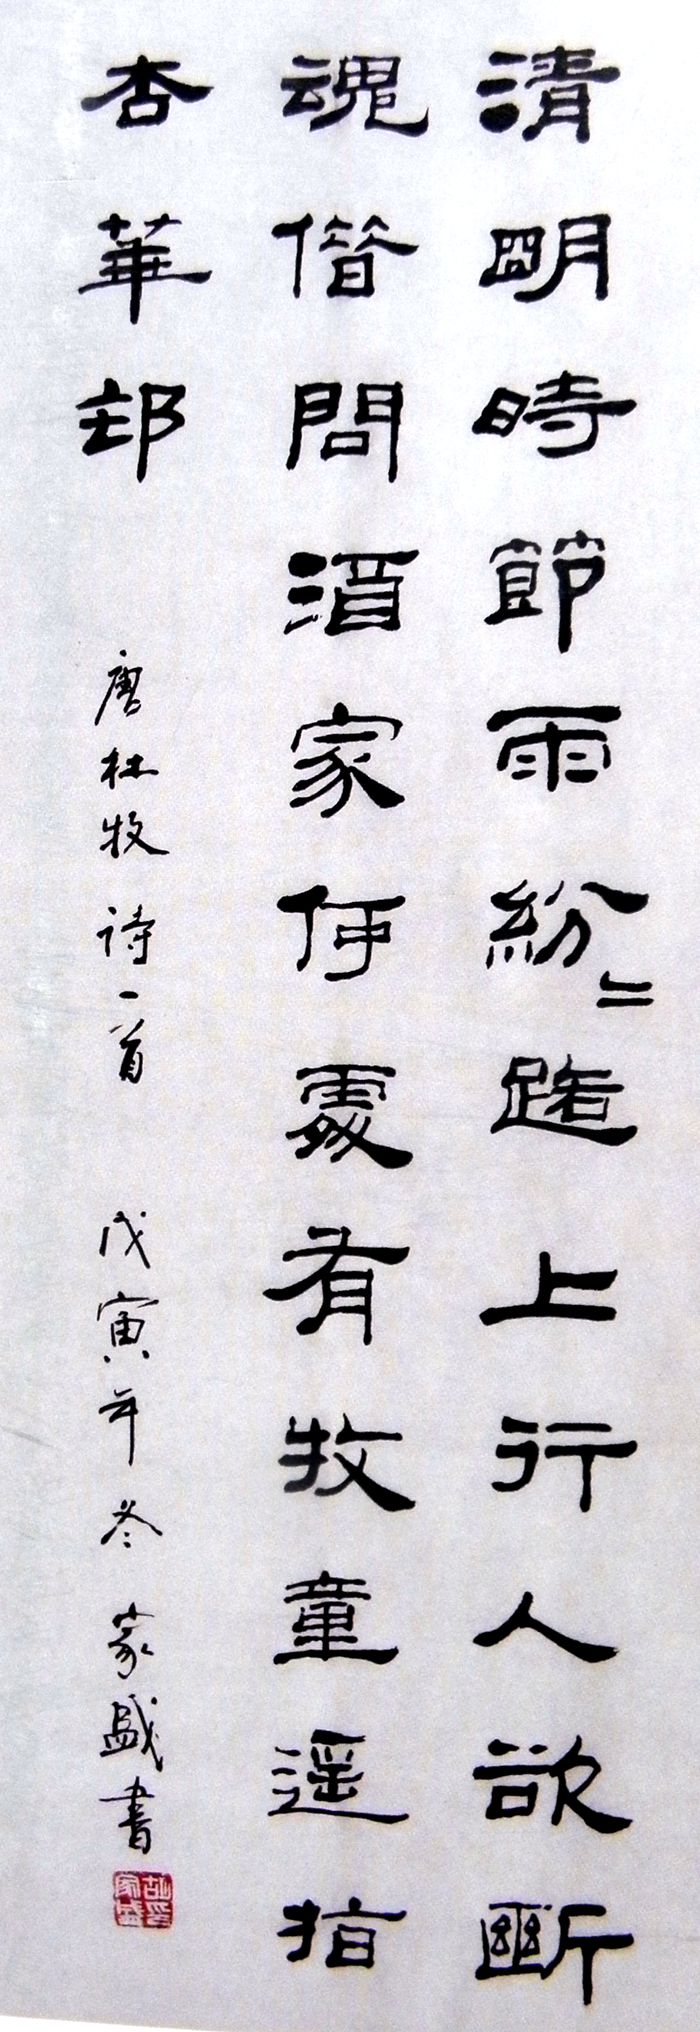 清明時節雨紛〻路上行人欲斷
魂借問酒家何處有牧童遥指
杏華邨
唐杜牧诗一首 戊寅年冬 家盛書